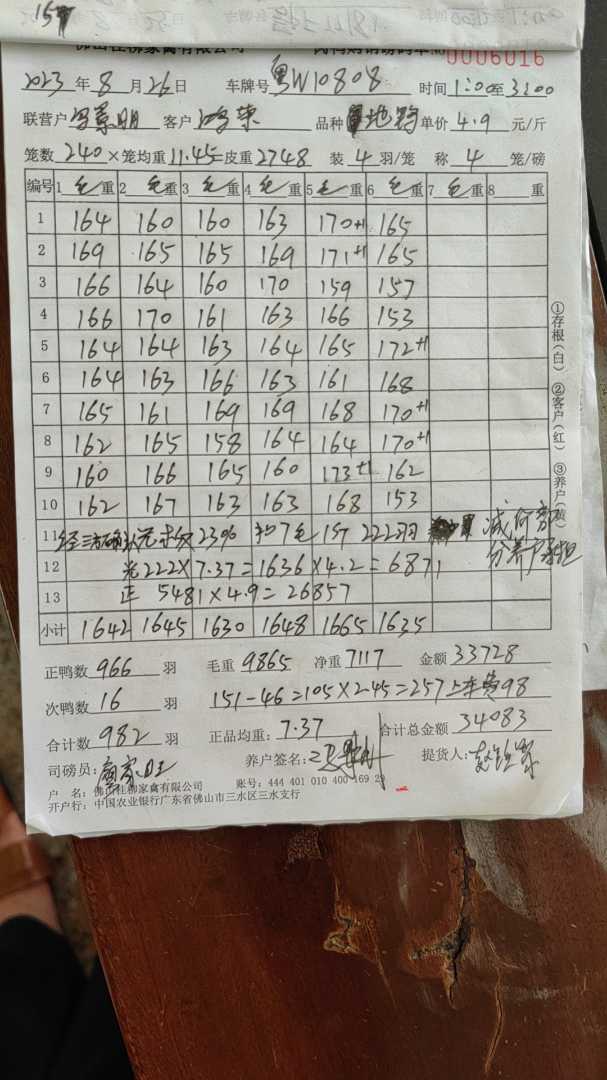 0006016
2023年8月26日 车牌号 粤W10808 时间1:00至3:00
联营户 客户 品种 单价4.9元/斤
笼数240×笼均重11.45=皮重2748 装4羽/笼 称4笼/磅
编号 1毛重 2毛重 3毛重 4毛重 5毛重 6毛重 7毛重 8重
1 164 160 160 163 170+1 165
2 169 165 165 169 171+1 165
3 166 164 160 170 159 157
4 166 170 161 163 166 153
5 164 164 163 164 165 172+1
6 164 163 166 163 161 168
7 165 161 169 169 168 170+1
8 162 165 158 164 164 170+1
9 160 166 165 160 173+1 162
10 162 167 163 163 168 153
11 经三方确认 23% 222羽
12 光222×7.37=1636×4.2=6871
13 正 5481×4.9=26857
小计 1642 1645 1630 1648 1665 1635
①存根(白) ②客户(红) ③养户
正鸭数966羽 毛重9865 净重7117 金额33728
次鸭数16羽 151-46=105×2.45=257上车费98
合计数982羽 正品均重:7.37 合计总金额34083
司磅员: 养户签名: 提货人:
户 名:佛山桂柳家禽有限公司 账号:444 401 010 400 169 29
开户行:中国农业银行广东省佛山市三水区三水支行